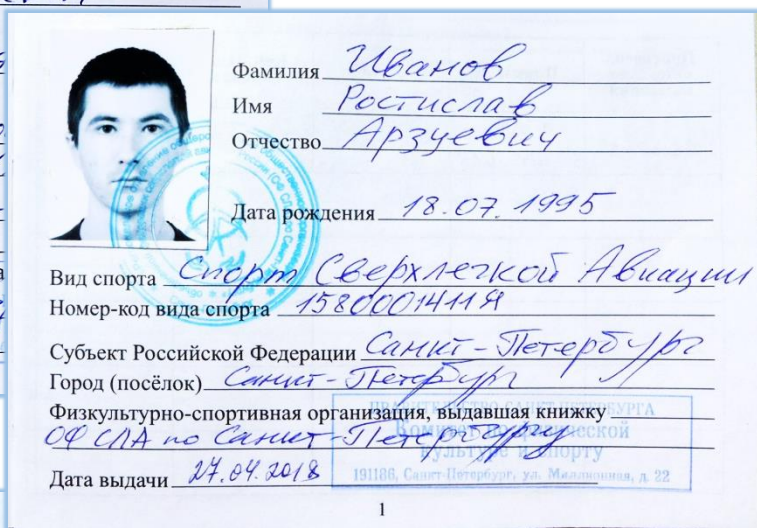 Фамилия Иванов
Имя Ростислав
Отчество Арзуевич
Дата рождения 18.07.1995
Вид спорта Спорт Сверхлегкой Авиации
Номер-код вида спорта 1580001411Я
Субъект Российской Федерации Санкт-Петербург
Город (посёлок) Санкт-Петербург
Физкультурно-спортивная организация, выдавшая книжку
ОФ СЛА по Санкт-Петербургу
ПРАВИТЕЛЬСТВО САНКТ-ПЕТЕРБУРГА
Комитет по физической
культуре и спорту
191186, Санкт-Петербург, ул. Миллионная, д. 22
Дата выдачи 27.04.2018
1